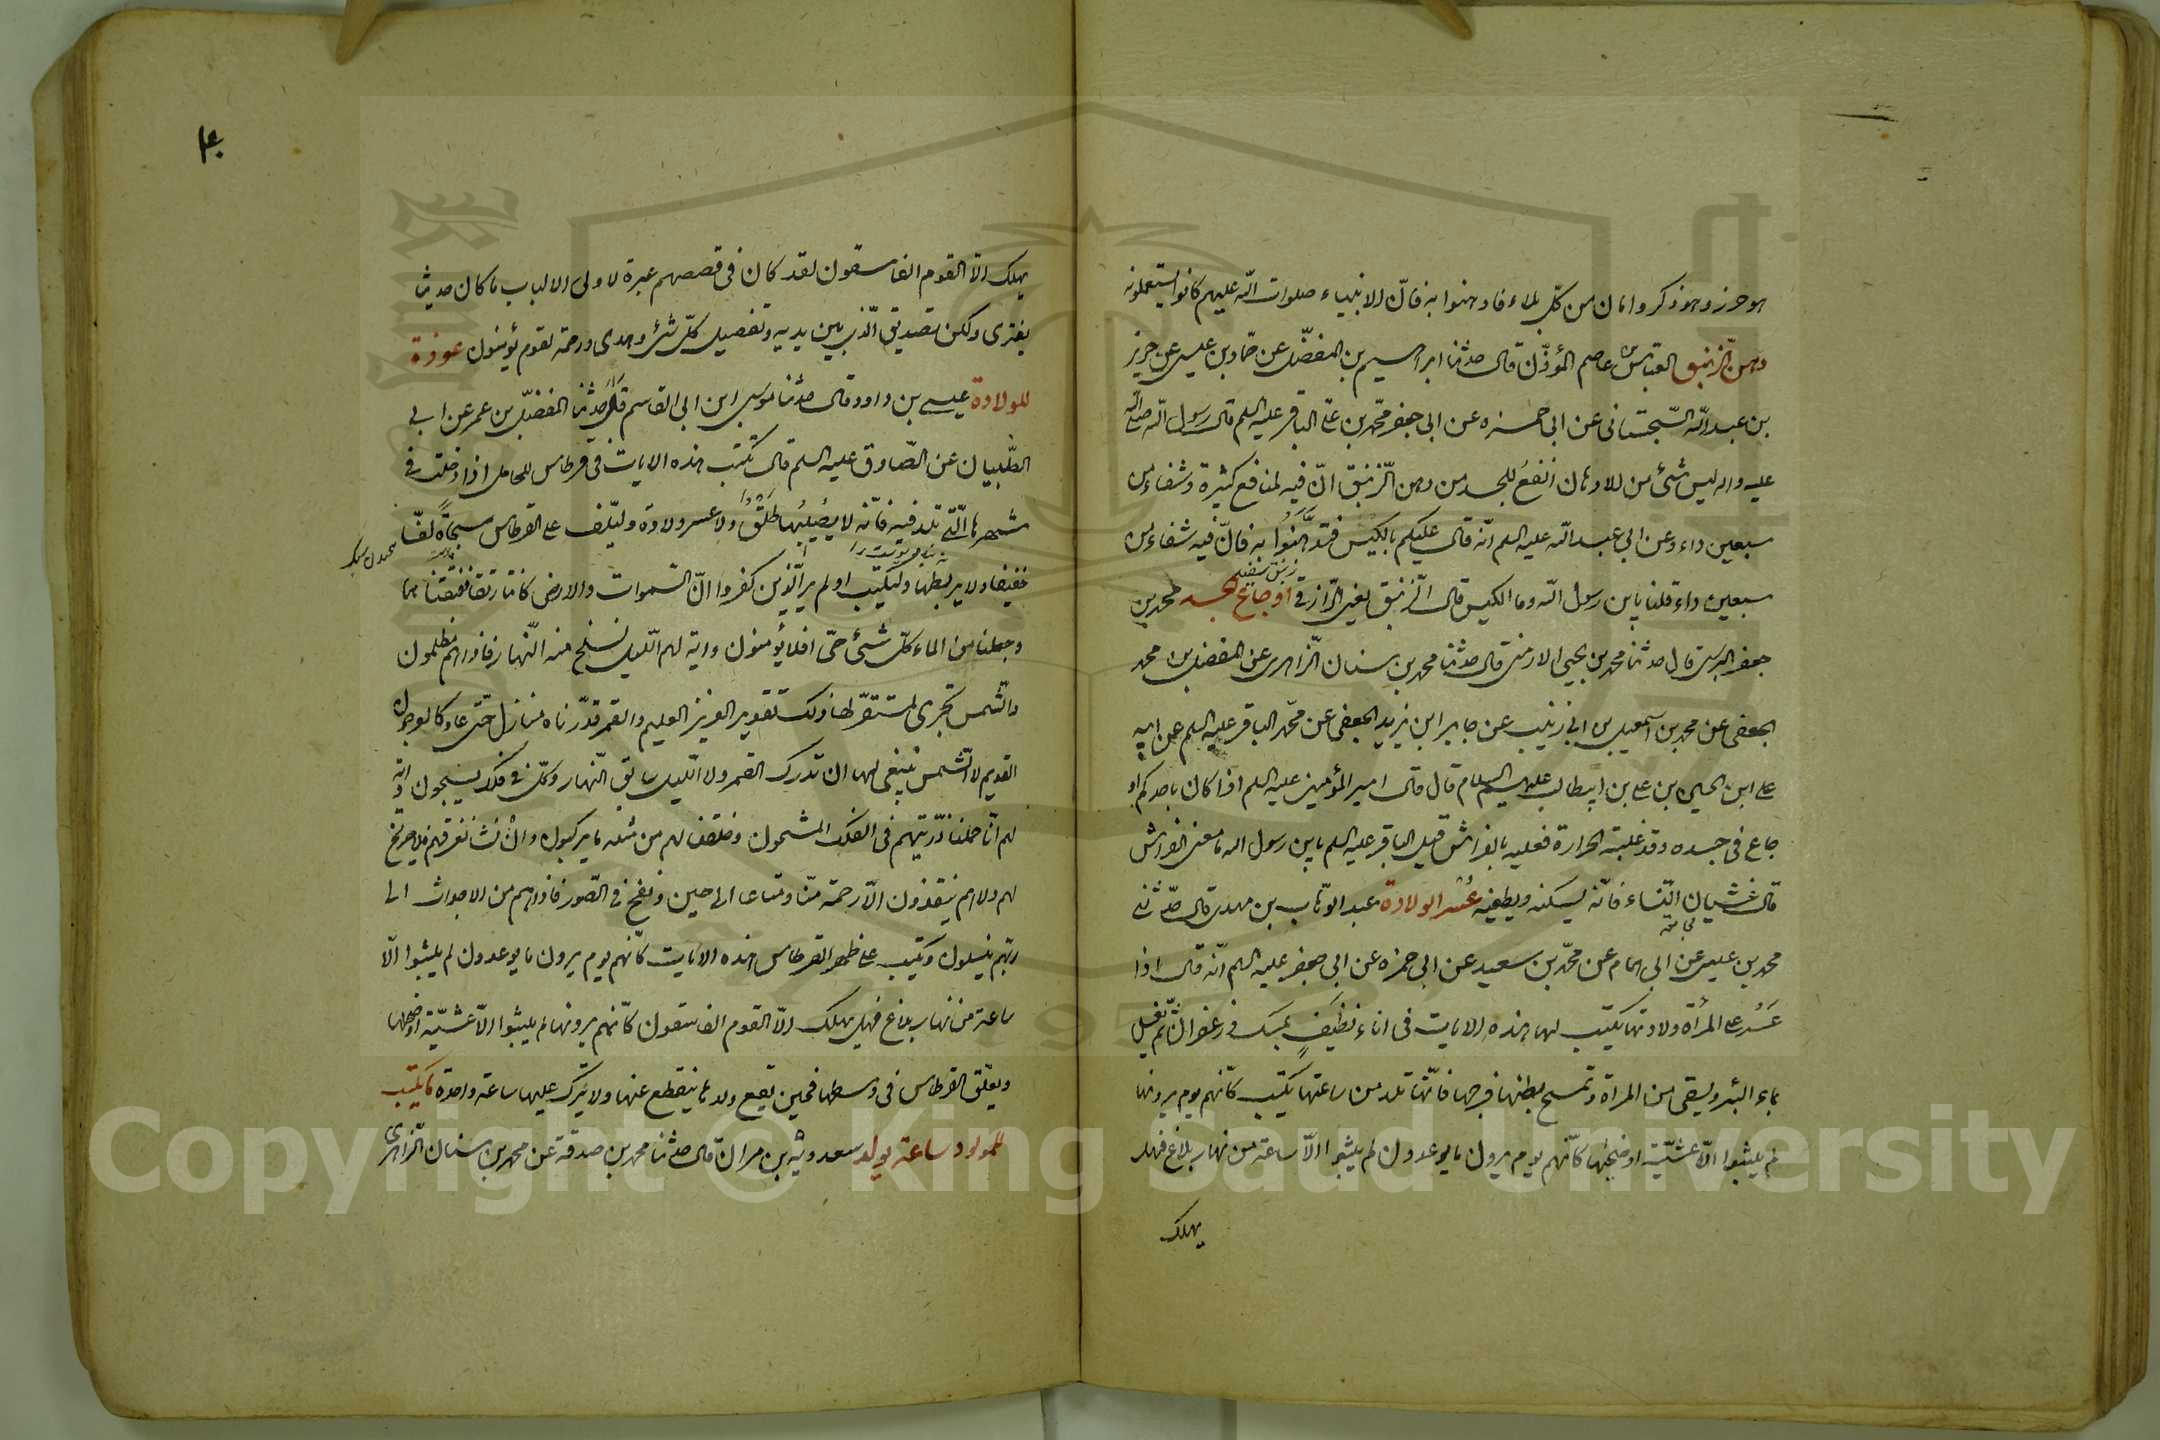 هو حرز وهو ذكر وامان من كلّ بلاء فادهنوا به فانّ الانبياء صلوات الله عليهم كانوا يستعملونه
دهن الزّنبق العبّاس بن عاصم المؤذّن قال حدّثنا ابراهيم بن المفضّل عن حمّاد بن عيسى عن حريز
بن عبد الله السّجستانى عن ابى حمزه عن ابى جعفر محمّد بن علىّ الباقر عليه السلم قال رسول الله صلى الله
عليه واله ليس شئ من الادهان انفع للجسد من دهن الزّنبق انّ فيه لمنافع كثيرة وشفاء من
سبعين داء وعن ابى عبد الله عليه السلم انّه قال عليكم بالكيس فتدهّنوا به فانّ فيه شفاء من
سبعين داء قلنا يابن رسول الله وما الكيس قال الزّنبق يعنى الرّازقى اوجاع الجسد محمد بن
زنبق سفيد
جعفر البرسى قال حدثنا محمد بن يحيى الارمنى قال حدثنا محمد بن سنان الزاهرى عن المفضل بن محمد
الجعفى عن محمد بن اسمعيل بن ابى زينب عن جابر ابن يزيد الجعفى عن محمّد الباقر عليه السلم عن ابيه
على ابن الحسين بن على بن ابيطالب عليهم السلام قال قال امير المؤمنين عليه السلم اذا كان باحدكم او
جاع فى جسده وقد غلبته الحرارة فعليه بالفراش قيل للباقر عليه السلم يابن رسول الله ما معنى الفراش
قال غشيان النّساء فانّه يسكنه ويطفيه عسر الولادة عبد الوهّاب بن مهدى قال حدّثنى
محمد بن عيسى عن ابى همام عن محمّد بن سعيد عن ابى حمزه عن ابى جعفر عليه السلم انّه قال اذا
عسر على المرأة ولادتها يكتب لها هذه الايات فى اناء نظيف بمسك وزعفران ثمّ يغسل
بماء البئر ويسقى من المرأة وتمسح بطنها وفرجها فانّها تلد من ساعتها يكتب كانّهم يوم يرونها
لم يلبثوا الاّ عشيّة او ضحيها كانّهم يوم يرون ما يوعدون لم يلبثوا الاّ ساعة من نهار بلاغ فهل
يهلك
يهلك الاّ القوم الفاسقون لقد كان فى قصصهم عبرة لاولى الالباب ما كان حديثا
يفترى ولكن تصديق الّذى بين يديه وتفصيل كلّ شئ وهدى ورحمة لقوم يؤمنون عوذة
للولادة عيسى بن داود قال حدّثنا موسى ابن ابى القاسم قال حدّثنا المفضّل بن عمر عن ابى
الظّبيان عن الصّادق عليه السلم قال تكتب هذه الايات فى قرطاس للحامل اذا دخلت فى
شهرها الّتى تلد فيه فانّه لا يصيبها طلق ولا عسر ولادة وليلف على القرطاس سحاة لفّا
خفيفا ولا يربطها وليكتب اولم ير الّذين كفروا انّ السّموات والارض كانتا رتقا ففتقناهما
وجعلنا من الماء كلّ شئ حىّ افلا يؤمنون واية لهم اللّيل نسلخ منه النّهار فاذا هم مظلمون
والشّمس تجرى لمستقرّ لها ذلك تقدير العزيز العليم والقمر قدّرناه منازل حتى عاد كالعرجون
القديم لا الشّمس ينبغى لها ان تدرك القمر ولا اللّيل سابق النّهار وكلّ فى فلك يسبحون واية
لهم انّا حملنا ذرّيتهم فى الفلك المشحون وخلقنا لهم من مثله ما يركبون وان نشأ نغرقهم فلا صريخ
لهم ولا هم ينقذون الاّ رحمة منّا ومتاعا الى حين ونفخ فى الصّور فاذا هم من الاجداث الى
ربّهم ينسلون وتكتب على ظهر القرطاس هذه الايات كانّهم يوم يرون ما يوعدون لم يلبثوا الاّ
ساعة من نهار بلاغ فهل يهلك الاّ القوم الفاسقون كانّهم يوم يرونها لم يلبثوا الاّ عشيّة او ضحيها
ويعلّق القرطاس فى وسطها فحين تقع ولدها ينقطع عنها ولا يترك عليها ساعة واحدة ما يكتب
للمولود ساعة يولد سعدويه بن مهران قال حدثنا محمد بن صدقة عن محمد بن سنان الزاهرى
Copyright © King Saud University